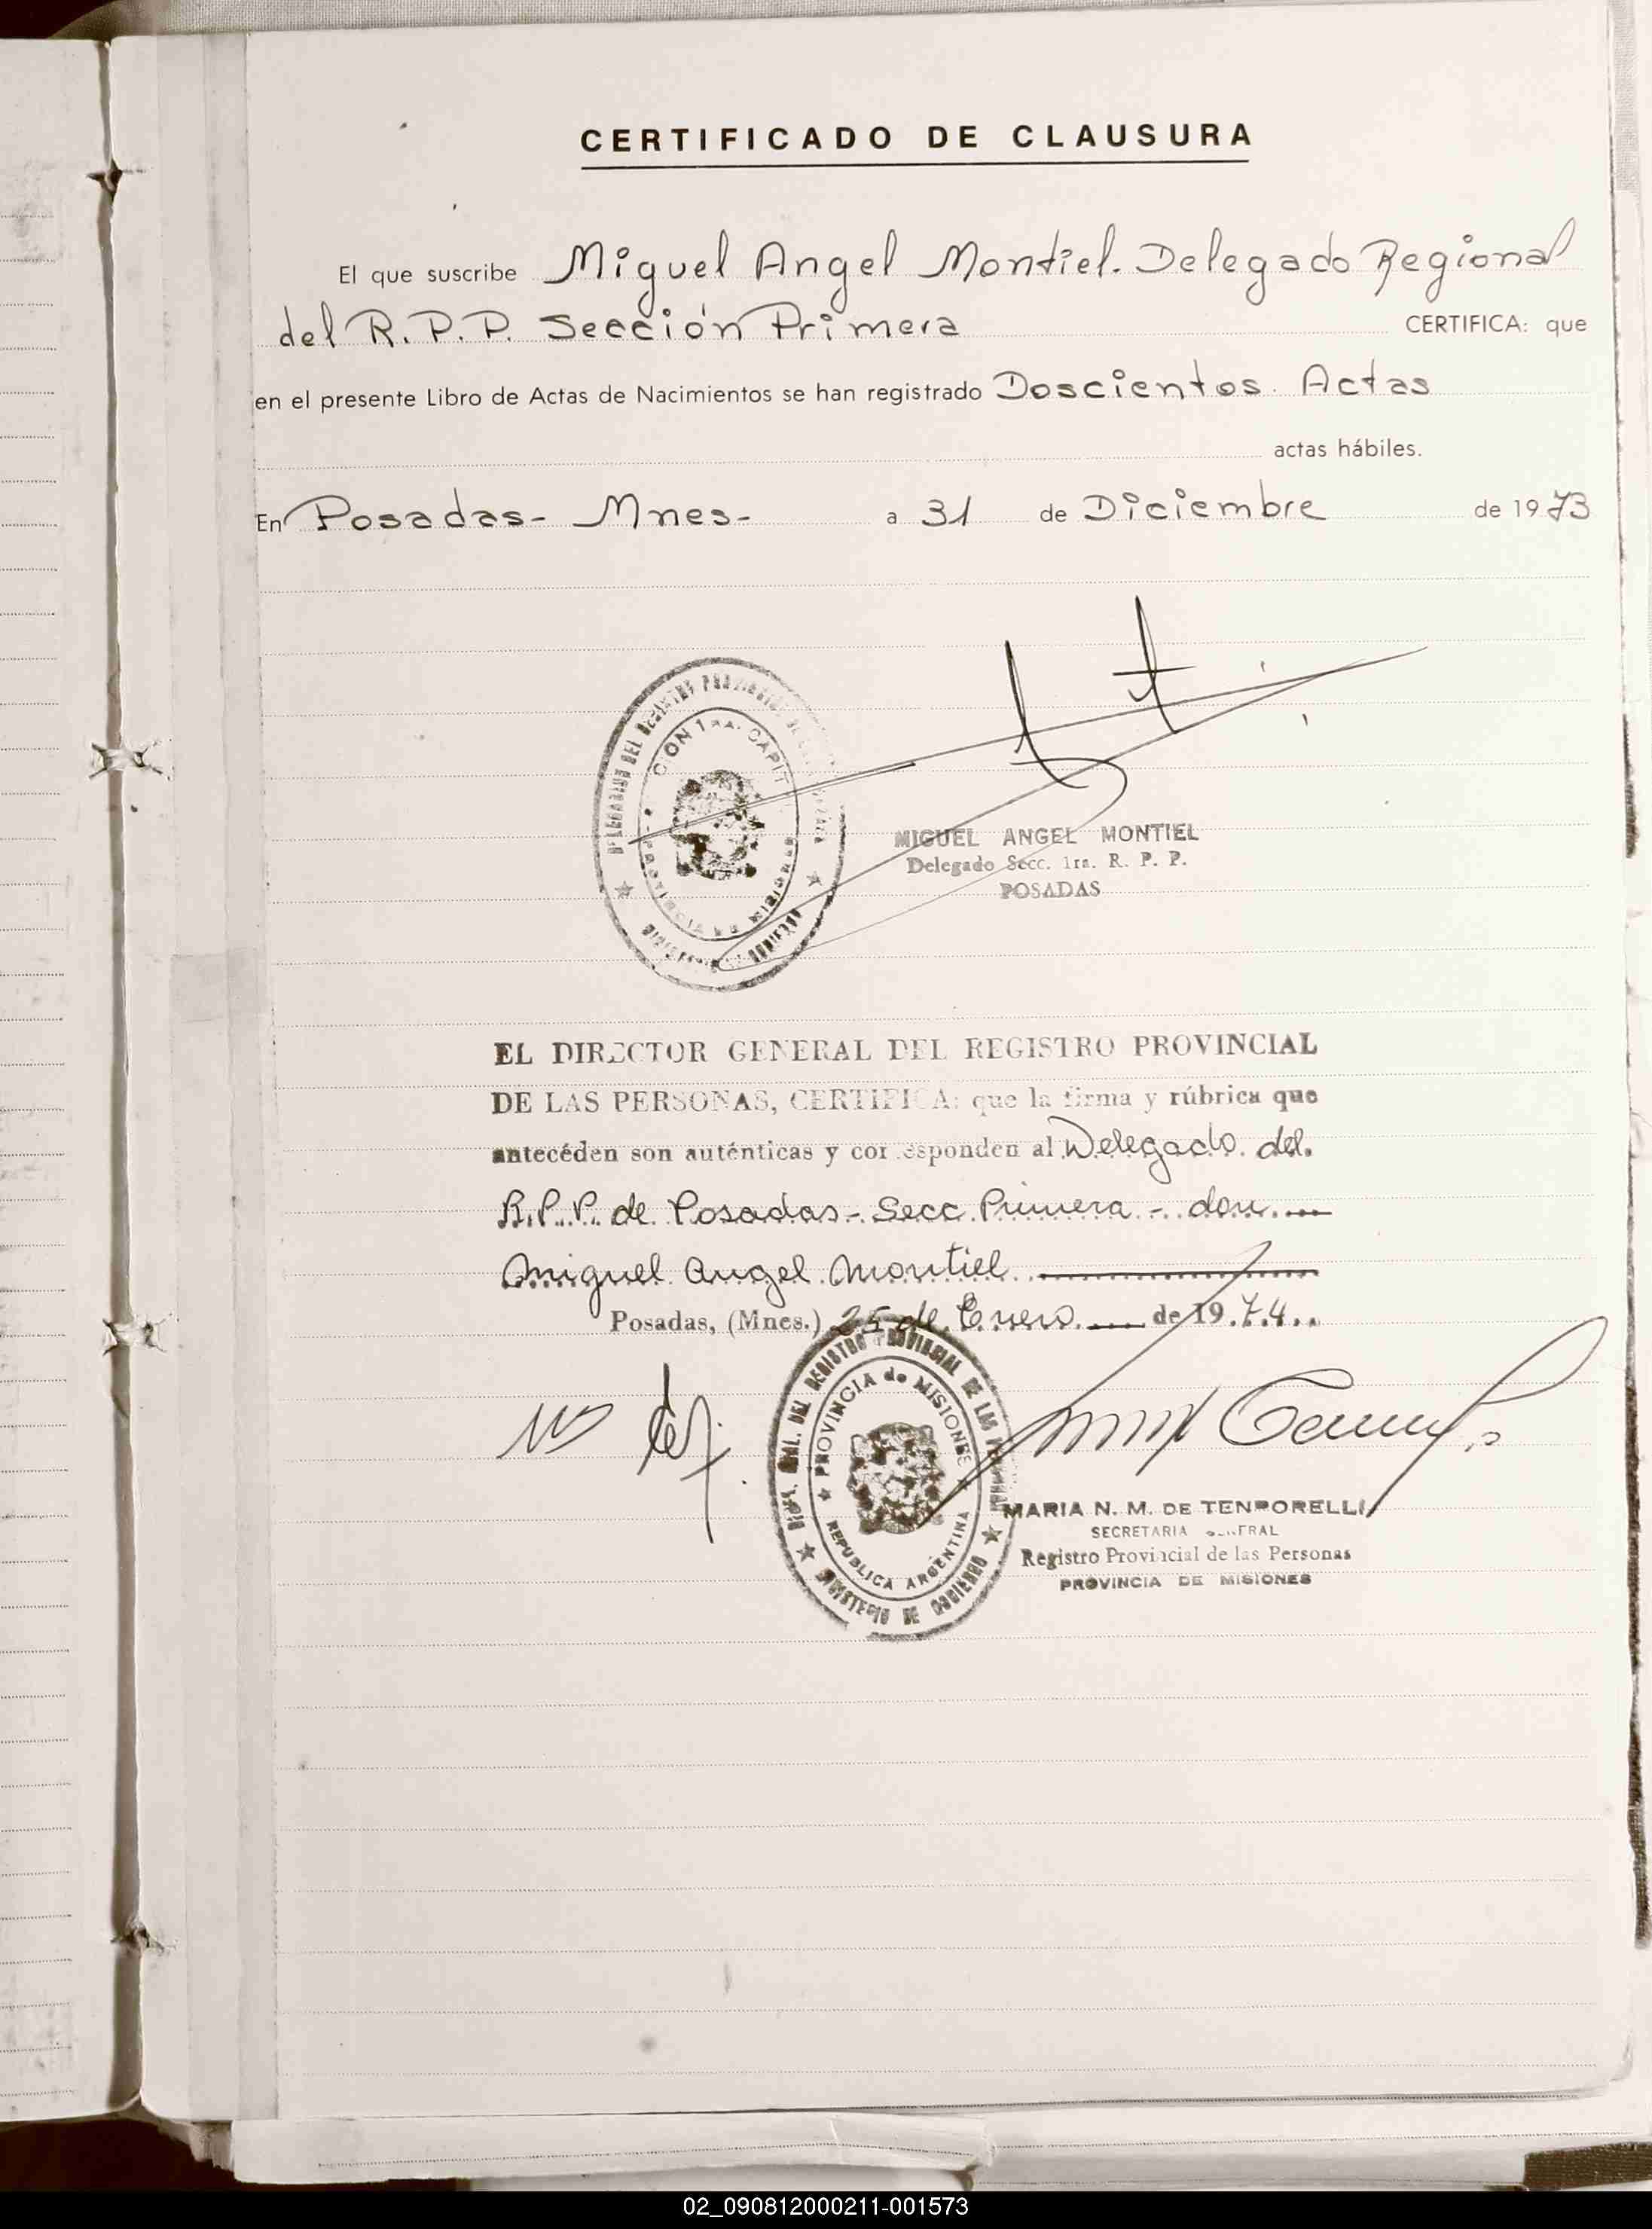 CERTIFICADO DE CLAUSURA
El que suscribe Miguel Angel Montiel. Delegado Regional
del R.P.P. Sección Primera CERTIFICA: que
en el presente Libro de Actas de Nacimientos se han registrado Doscientos Actas
actas hábiles.
En Posadas- Mnes- a 31 de Diciembre de 1973
MIGUEL ANGEL MONTIEL
Delegado Secc. 1ra. R. P. P.
POSADAS
EL DIRECTOR GENERAL DEL REGISTRO PROVINCIAL
DE LAS PERSONAS, CERTIFICA: que la firma y rúbrica que
antecéden son auténticas y corresponden al Delegado del
R.P.P. de Posadas- Secc Primera - don
Miguel Angel Montiel
Posadas, (Mnes.) 25 de Enero de 1974
DEL REGISTRO PROVINCIAL DE LAS
PROVINCIA de MISIONES
REPUBLICA ARGENTINA
MINISTERIO DE GOBIERNO
MARIA N. M. DE TEMPORELLI
SECRETARIA GENERAL
Registro Provincial de las Personas
PROVINCIA DE MISIONES
02_090812000211-001573